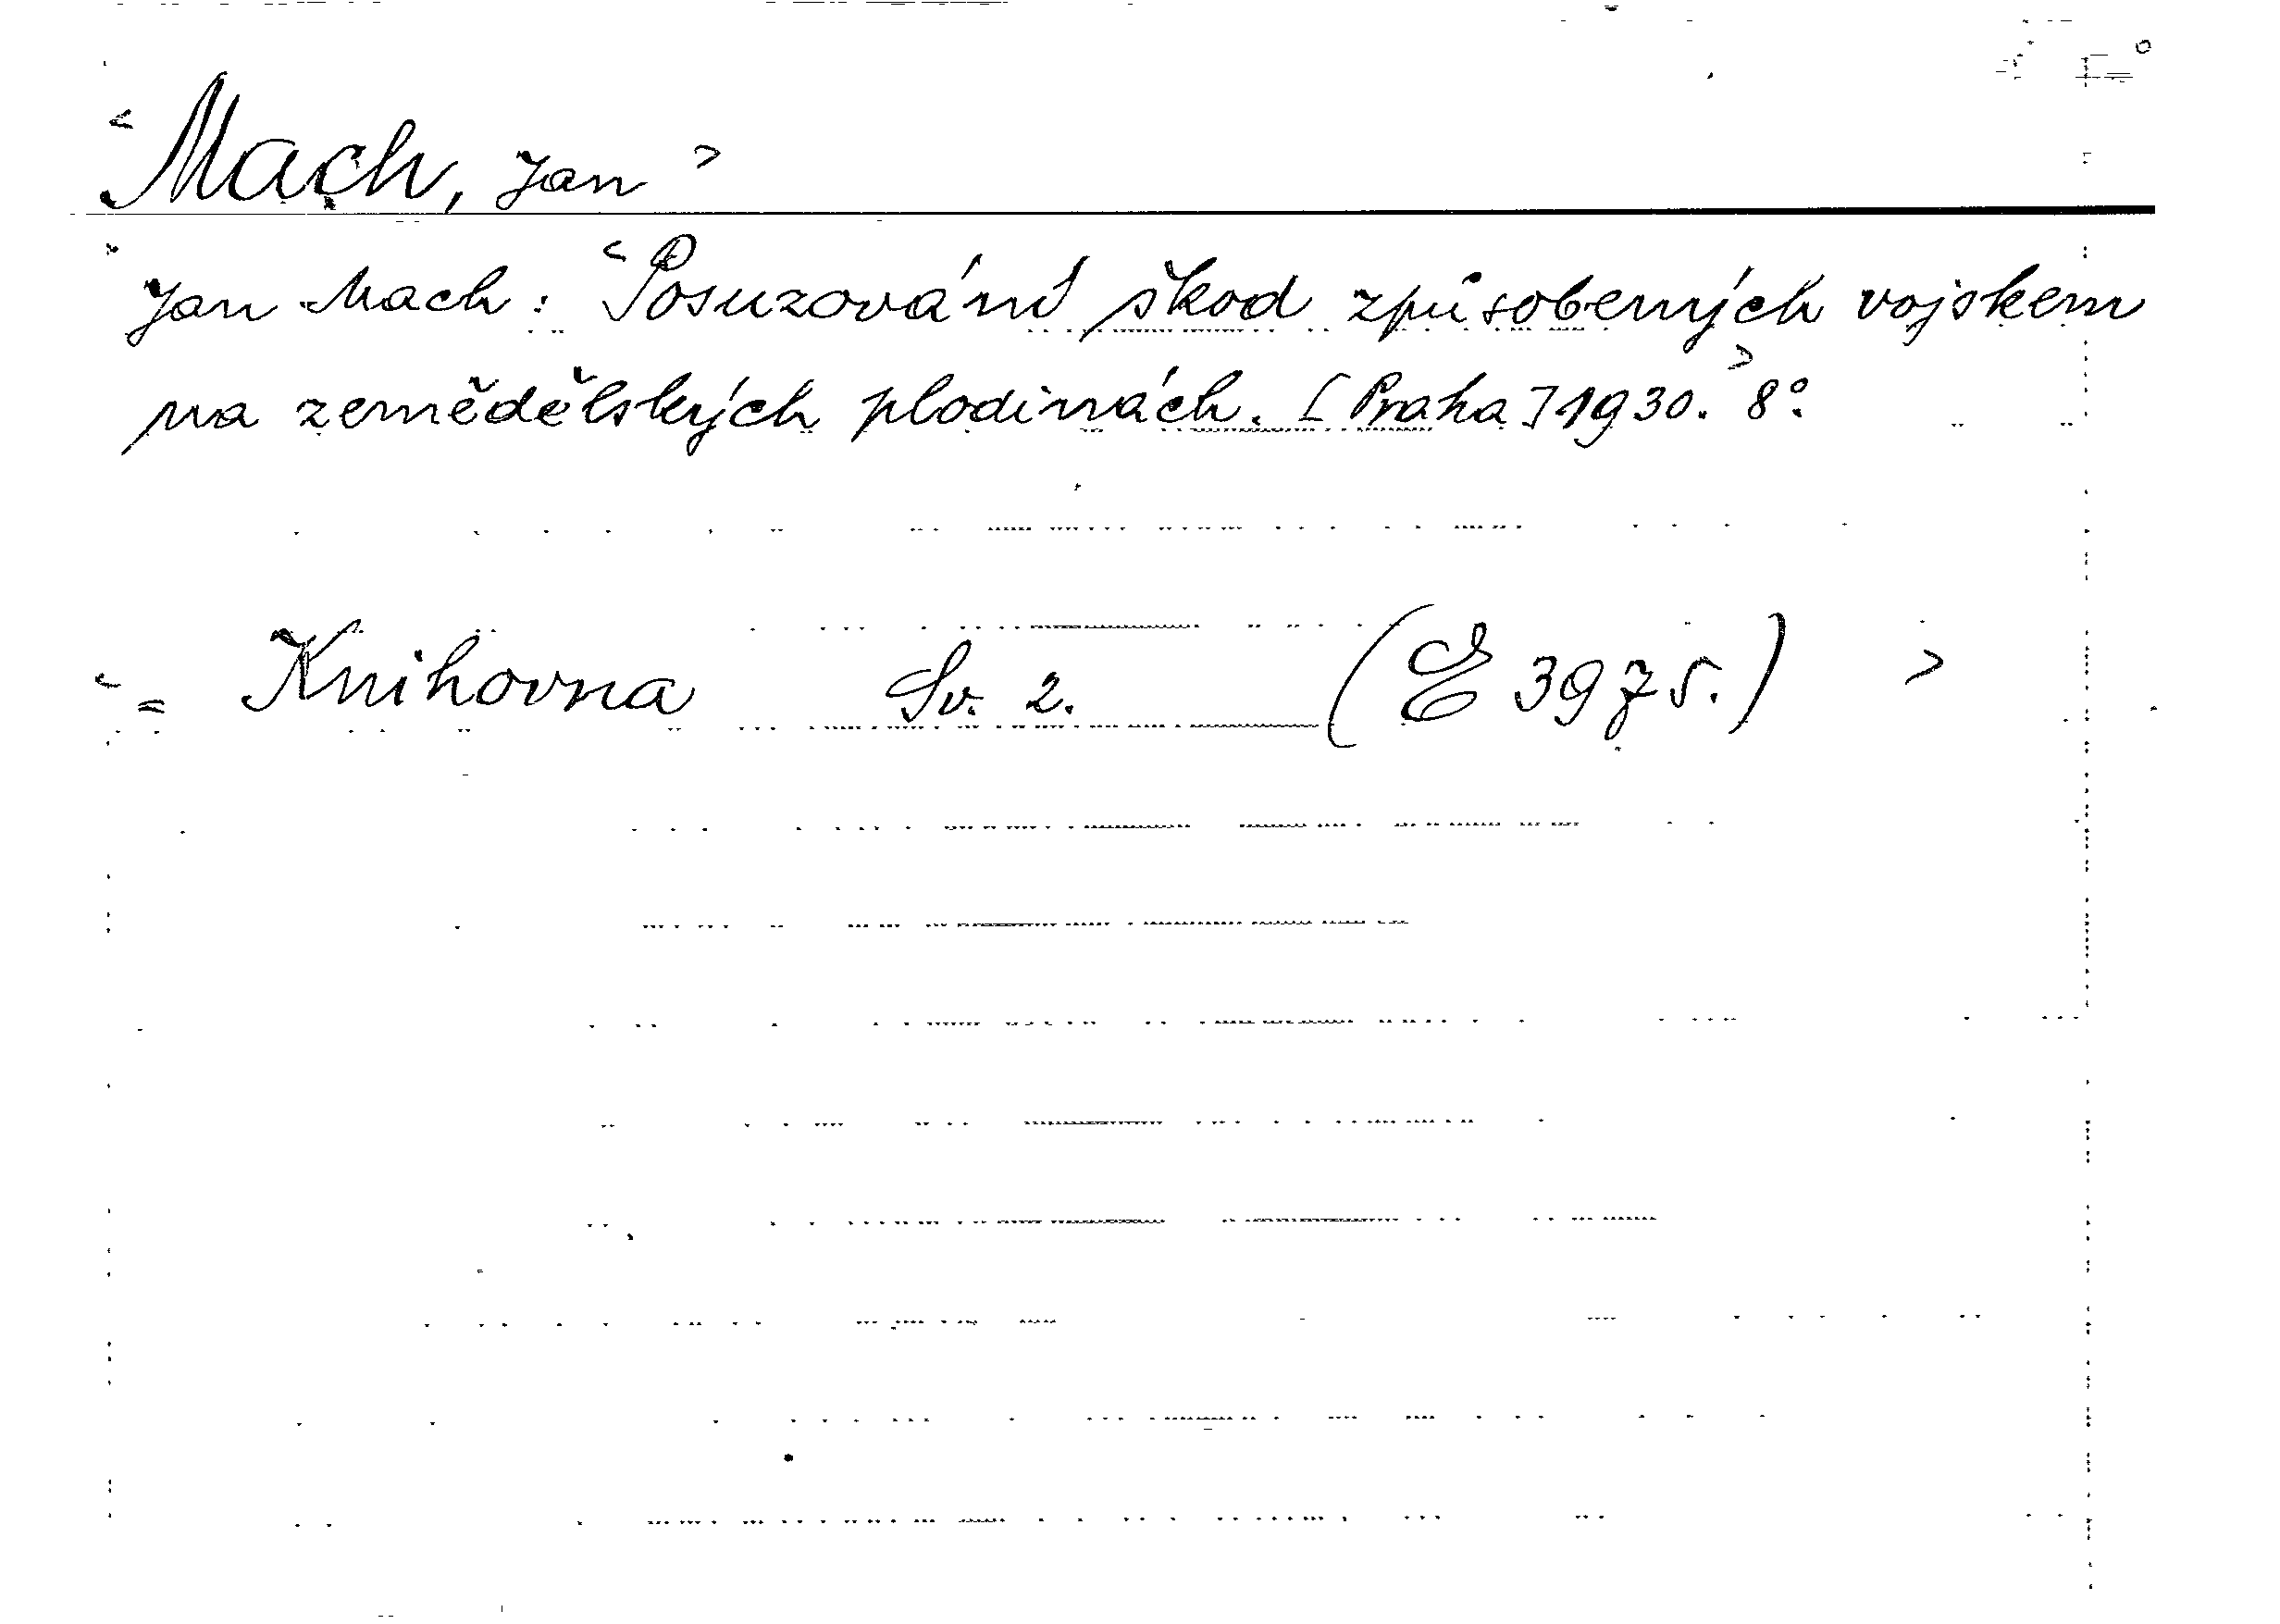 <Mach, Jan>
Jan Mach: <Posuzování škod způsobených vojskem
na zemědělských plodinách. [Praha] 1930.> 8°.
<= Knihovna Sv. 2. (E 3975.) >